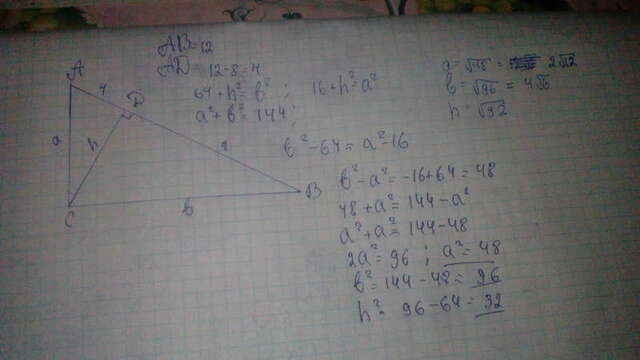 AB=12
AD=12-8=4
64+h²=b² ; 16+h²=a²
a²+b²=144;
b²-64=a²-16
b²-a²=-16+64=48
48+a²=144-a²
a²+a²=144-48
2a²=96 ; a²=48
b²=144-48=96
h²=96-64=32
a=√48= 2√12
b=√96=4√6
h=√32
A
4
D
a
h
8
B
C
b